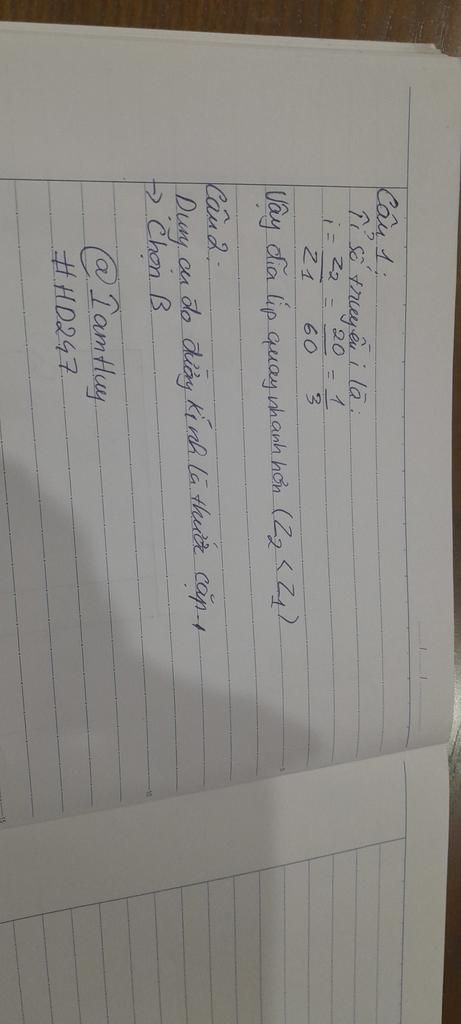 Câu 1:
Tỉ số truyền i là:
i = Z2 = 20 = 1
Z1 60 3
Vậy đĩa líp quay nhanh hơn (Z2 < Z1)
Câu 2:
Dụng cụ đo đường kính là thước cặp
→ Chọn B
@IamHuy
#HD247